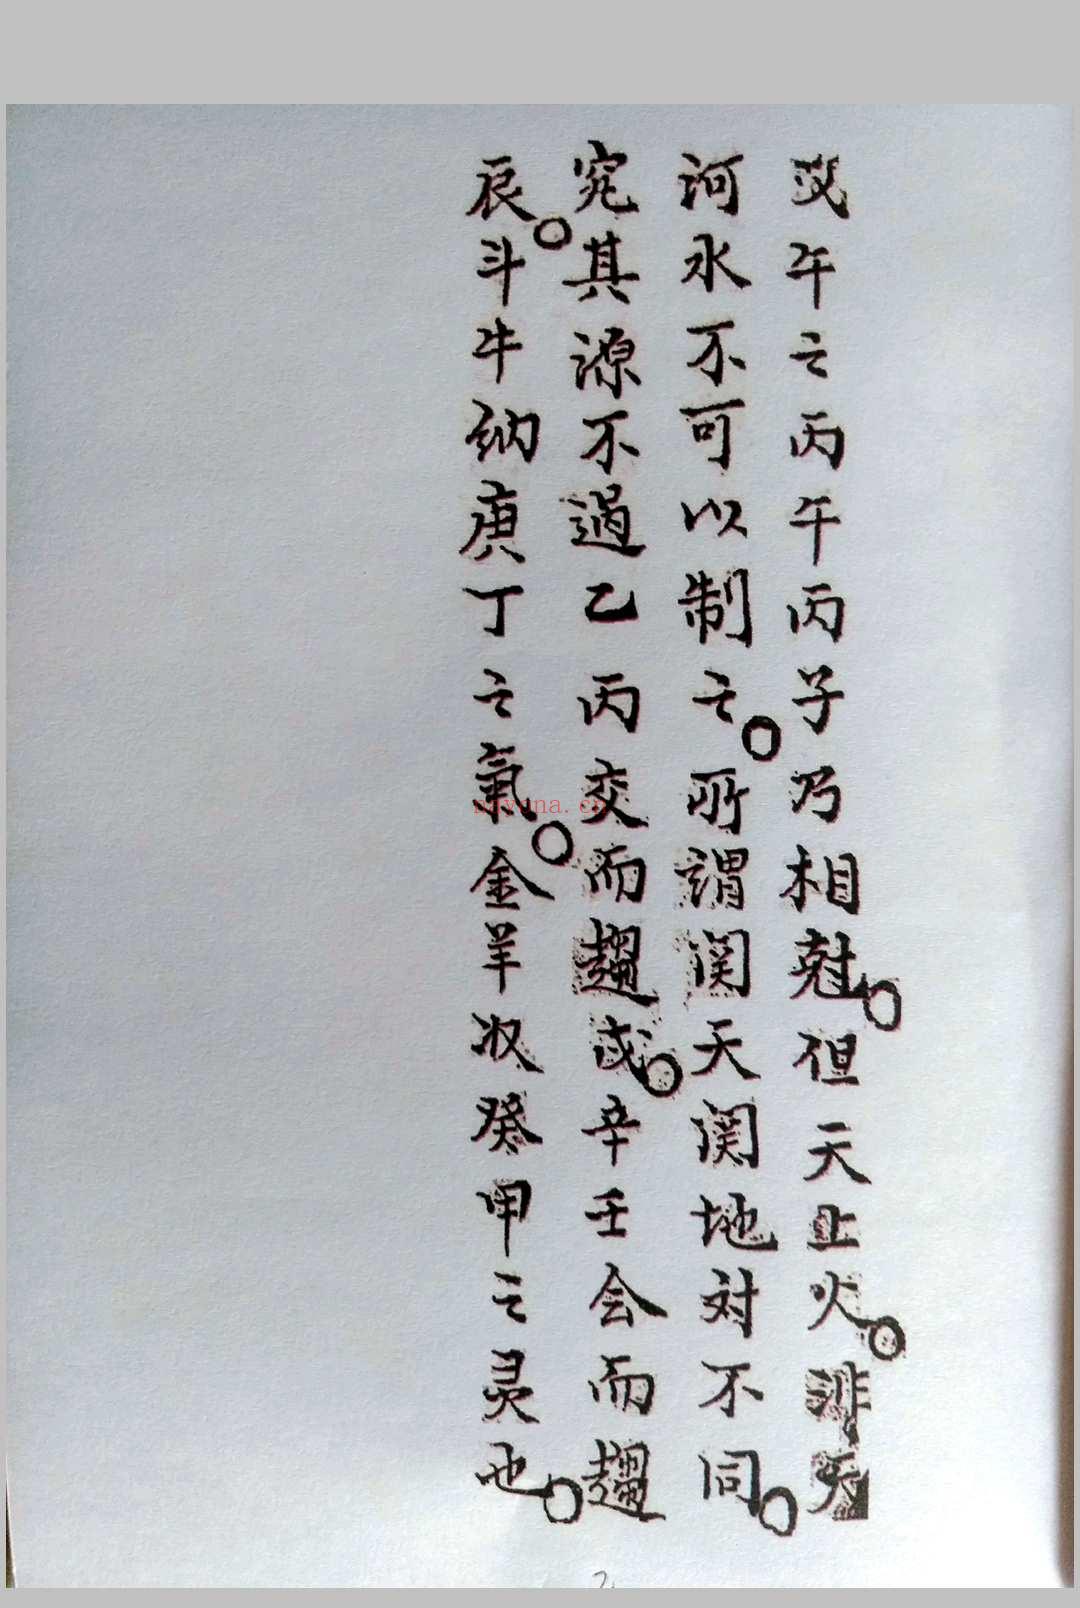 午之丙午丙子乃相尅。但天上火。非天
河水不可以制之。所谓関天関地対不同。
究其源不过乙丙交而趨戌。辛壬会而趨
辰。斗牛纳庚丁之氣。金羊収癸甲之灵也。